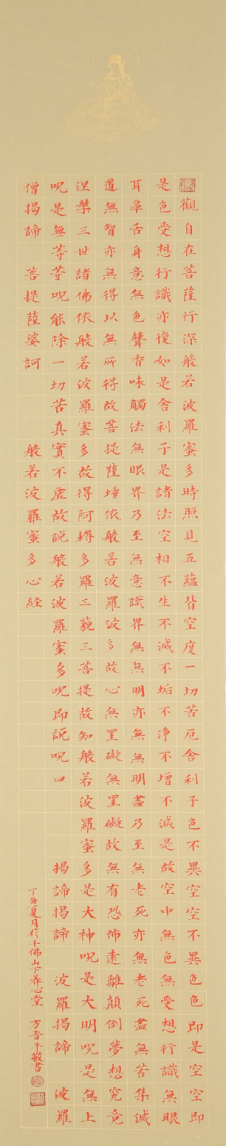 觀自在菩薩行深般若波羅蜜多時照見五蘊皆空度一切苦厄舍利子色不異空空不異色色即是空空即
是色受想行識亦復如是舍利子是諸法空相不生不滅不垢不淨不增不減是故空中無色無受想行識無眼
耳鼻舌身意無色聲香味觸法無眼界乃至無意識界無無明亦無無明盡乃至無老死亦無老死盡無苦集滅
道無智亦無得以無所得故菩提薩埵依般若波羅蜜多故心無罣礙無罣礙故無有恐怖遠離顛倒夢想究竟
涅槃三世諸佛依般若波羅蜜多故得阿耨多羅三藐三菩提故知般若波羅蜜多是大神呪是大明呪是無上
呪是無等等呪能除一切苦真實不虛故說般若波羅蜜多呪即說呪曰 揭諦揭諦 波羅揭諦 波羅
僧揭諦 菩提薩婆訶 般若波羅蜜多心經
丁酉夏月於千佛山下養心堂 方晉平敬書